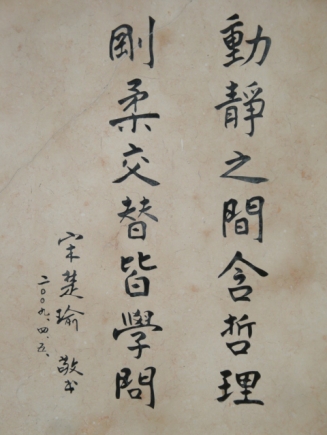 動靜之間含哲理
剛柔交替皆學問
宋楚瑜 敬書
二〇〇九.四.五.